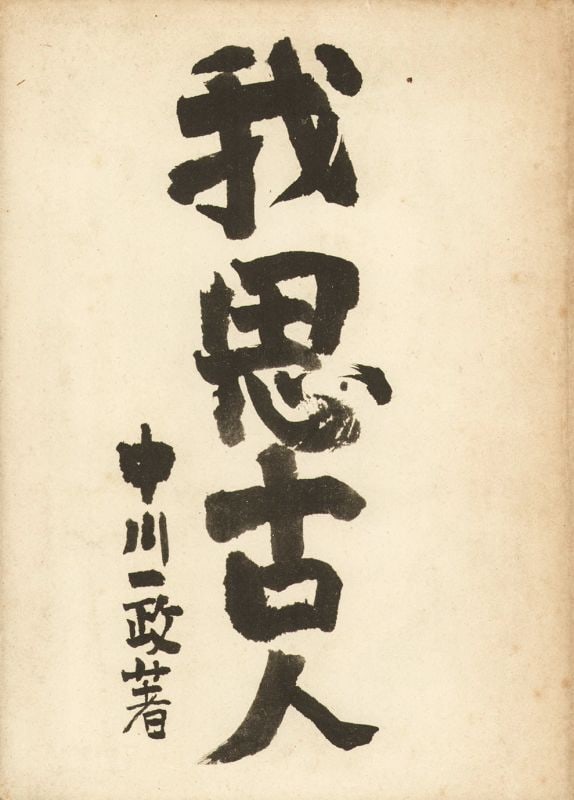 我思古人
中川一政著